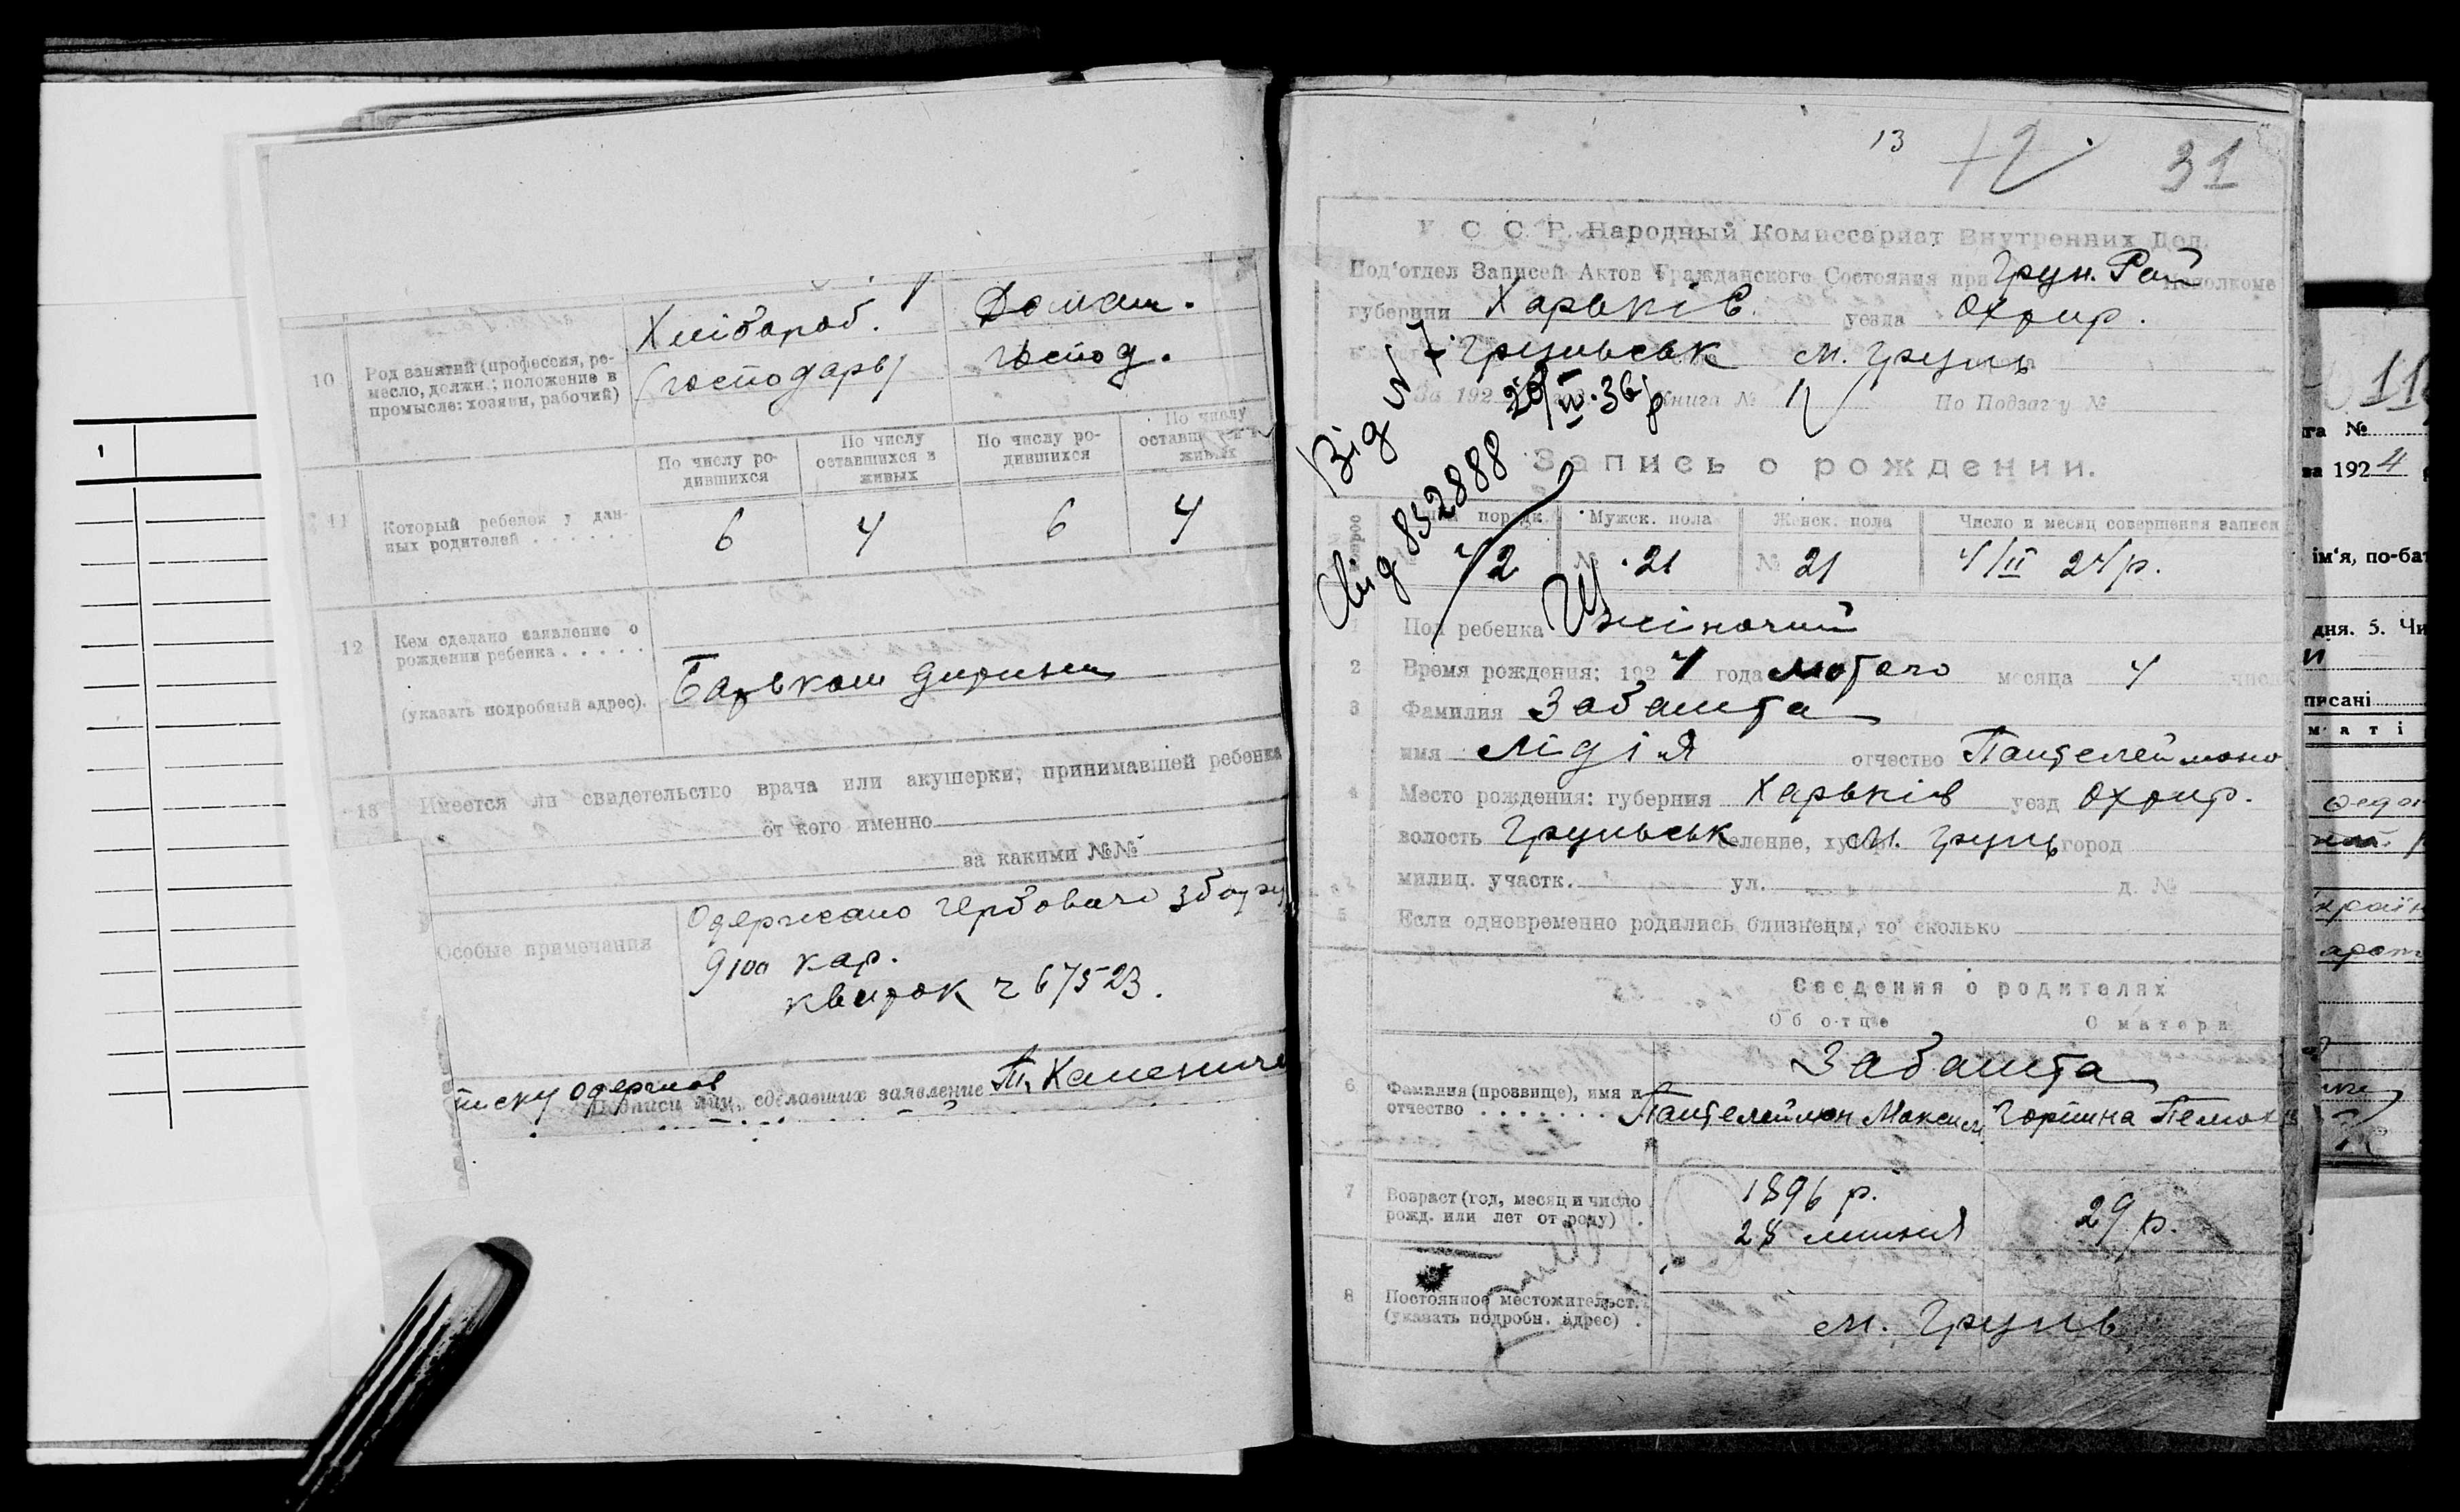 1
10
Род занятий (профессия, ре-
месло, должн.; положение в
промысле: хозяин, рабочий)
Хлібороб.
(господарь)
Домаш.
господ.
11
Который ребенок у дан-
ных родителей . . . . . .
По числу ро-
дившихся
По числу
оставшихся в
живых
По числу ро-
дившихся
По числу
оставш
живых
6
4
6
4
12
Кем сделано заявление о
рождении ребенка . . . . .
(указать подробный адрес).
Батьком
13
Имеется ли свидетельство врача или акушерки, принимавшей ребенка
от кого именно
за какими №№
Особые примечания
Одержано гербового
кар.
квиток
Подписи лиц, сделавших заявление
13
12
31
У. С. С. Р. Народный Комиссариат Внутренних Дел.
Под'отдел Записей Актов Гражданского Состояния при Грун. Рай Исполкоме
губернии Харьків. уезда Охтир.
Грунськ м. Грунь
За 192
Книга №
По Подзаг у №
Від N 7.
20/IV.36 р
832888
Запись о рождении.
Мужск. пола
Женск. пола
Число и месяц совершения записи
42
№ 21
№ 21
4/II 24 р.
Пол ребенка Жіночий
2
Время рождения: 1924 года Лютого месяца 4 числа
3
Фамилия Забашта
имя Лідія отчество Пантелеймоно
4
Место рождения: губерния Харьків уезд Охтир.
волость Грунськ селение, хутор м. Грунь город
милиц. участк. ул. д. №
5
Если одновременно родились близнецы, то сколько
Сведения о родителях
Об отце
О матери
6
Фамилия (прозвище), имя и
отчество . . . . . . .
Забашта
Пантелеймон Максим
Горпина
7
Возраст (год, месяц и число
рожд. или лет от роду) .
1896 р.
28 липня
29 р.
8
Постоянное местожительст.
(указать подробн. адрес) .
м. Грунь
11
га №
за 1924
ім'я, по-ба
дня. 5. Чи
писані
м а т і